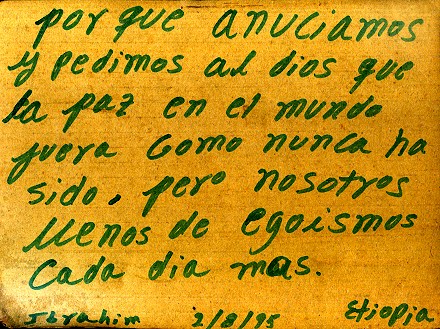 por que anuciamos
y pedimos al dios que
la paz en el mundo
fuera como nunca ha
sido. pero nosotros
llenos de egoismos
cada dia mas.
Ibrahim 2/8/95 Etiopia